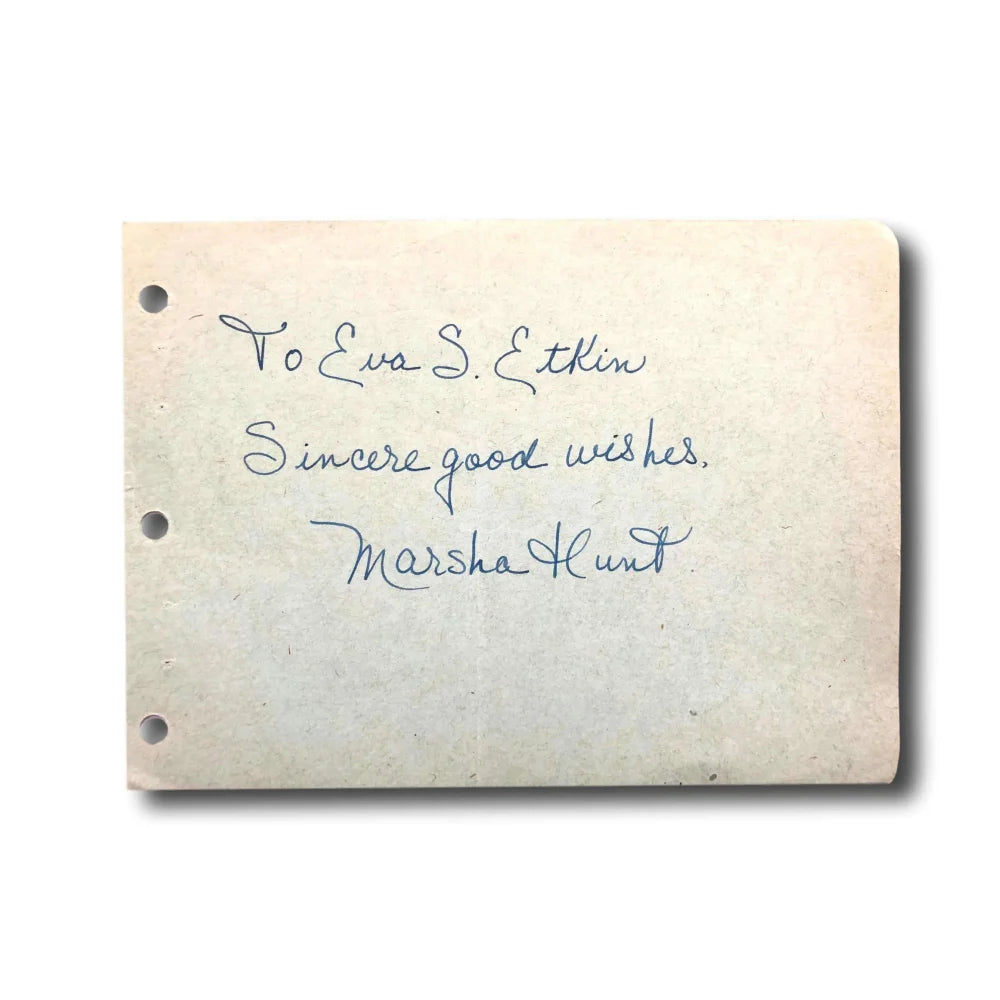 To Eva S. Etkin
Sincere good wishes.
Marsha Hunt